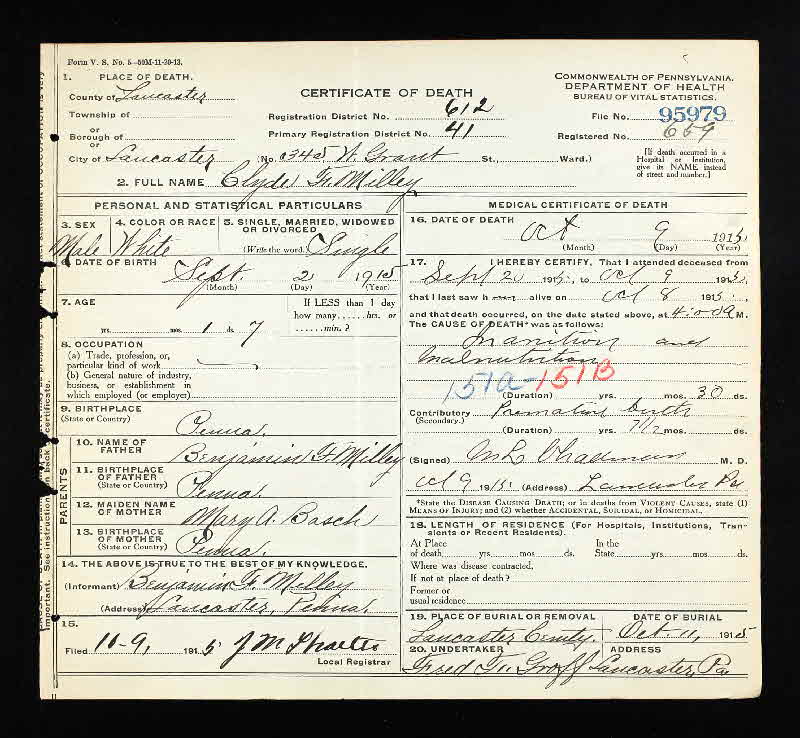 Form V. S. No. 5—50M-11-20-13.
1. PLACE OF DEATH.
County of Lancaster
Township of
or
Borough of
or
City of Lancaster
CERTIFICATE OF DEATH
Registration District No. 612
Primary Registration District No. 41
(No. 345 W. Grant St., Ward.)
COMMONWEALTH OF PENNSYLVANIA.
DEPARTMENT OF HEALTH
BUREAU OF VITAL STATISTICS.
File No. 95979
Registered No. 659
[If death occurred in a Hospital or Institution, give its NAME instead of street and number.]
2. FULL NAME Clyde F. Milley
PERSONAL AND STATISTICAL PARTICULARS
3. SEX Male
4. COLOR OR RACE White
5. SINGLE, MARRIED, WIDOWED OR DIVORCED
(Write the word.) Single
6. DATE OF BIRTH
Sept. 2 1915
(Month) (Day) (Year)
7. AGE
yrs. mos. 1 ds. 7
If LESS than 1 day
how many ...... hrs. or
...... min.?
8. OCCUPATION
(a) Trade, profession, or,
particular kind of work
(b) General nature of industry,
business, or establishment in
which employed (or employer)
9. BIRTHPLACE
(State or Country)
Penna.
PARENTS
10. NAME OF FATHER
Benjamin F. Milley
11. BIRTHPLACE OF FATHER
(State or Country) Penna.
12. MAIDEN NAME OF MOTHER
Mary A. Basch
13. BIRTHPLACE OF MOTHER
(State or Country) Penna.
14. THE ABOVE IS TRUE TO THE BEST OF MY KNOWLEDGE.
(Informant) Benjamin F. Milley
(Address) Lancaster, Penna.
15.
Filed 10-9, 1915 J M
Local Registrar
MEDICAL CERTIFICATE OF DEATH
16. DATE OF DEATH
Oct 9 1915
(Month) (Day) (Year)
17. I HEREBY CERTIFY, That I attended deceased from
Sept 20 1915, to Oct 9 1915,
that I last saw h alive on Oct 8 1915,
and that death occurred, on the date stated above, at 4:00 A M.
The CAUSE OF DEATH* was as follows:
Inanition and
Malnutrition
151a-151B
(Duration) yrs. mos. 30 ds.
Contributory Premature birth
(Secondary.)
(Duration) yrs. 7 1/2 mos. ds.
(Signed) M. D.
Oct 9 1915 (Address) Lancaster Pa
*State the DISEASE CAUSING DEATH; or in deaths from VIOLENT CAUSES, state (1)
MEANS OF INJURY; and (2) whether ACCIDENTAL, SUICIDAL, or HOMICIDAL.
18. LENGTH OF RESIDENCE (For Hospitals, Institutions, Transients or Recent Residents).
At Place of death yrs. mos ds. In the State yrs. mos. ds.
Where was disease contracted,
If not at place of death?
Former or
usual residence
19. PLACE OF BURIAL OR REMOVAL
Lancaster Cemty.
DATE OF BURIAL
Oct. 11, 1915
20. UNDERTAKER
Fred F. Groff
ADDRESS
Lancaster, Pa